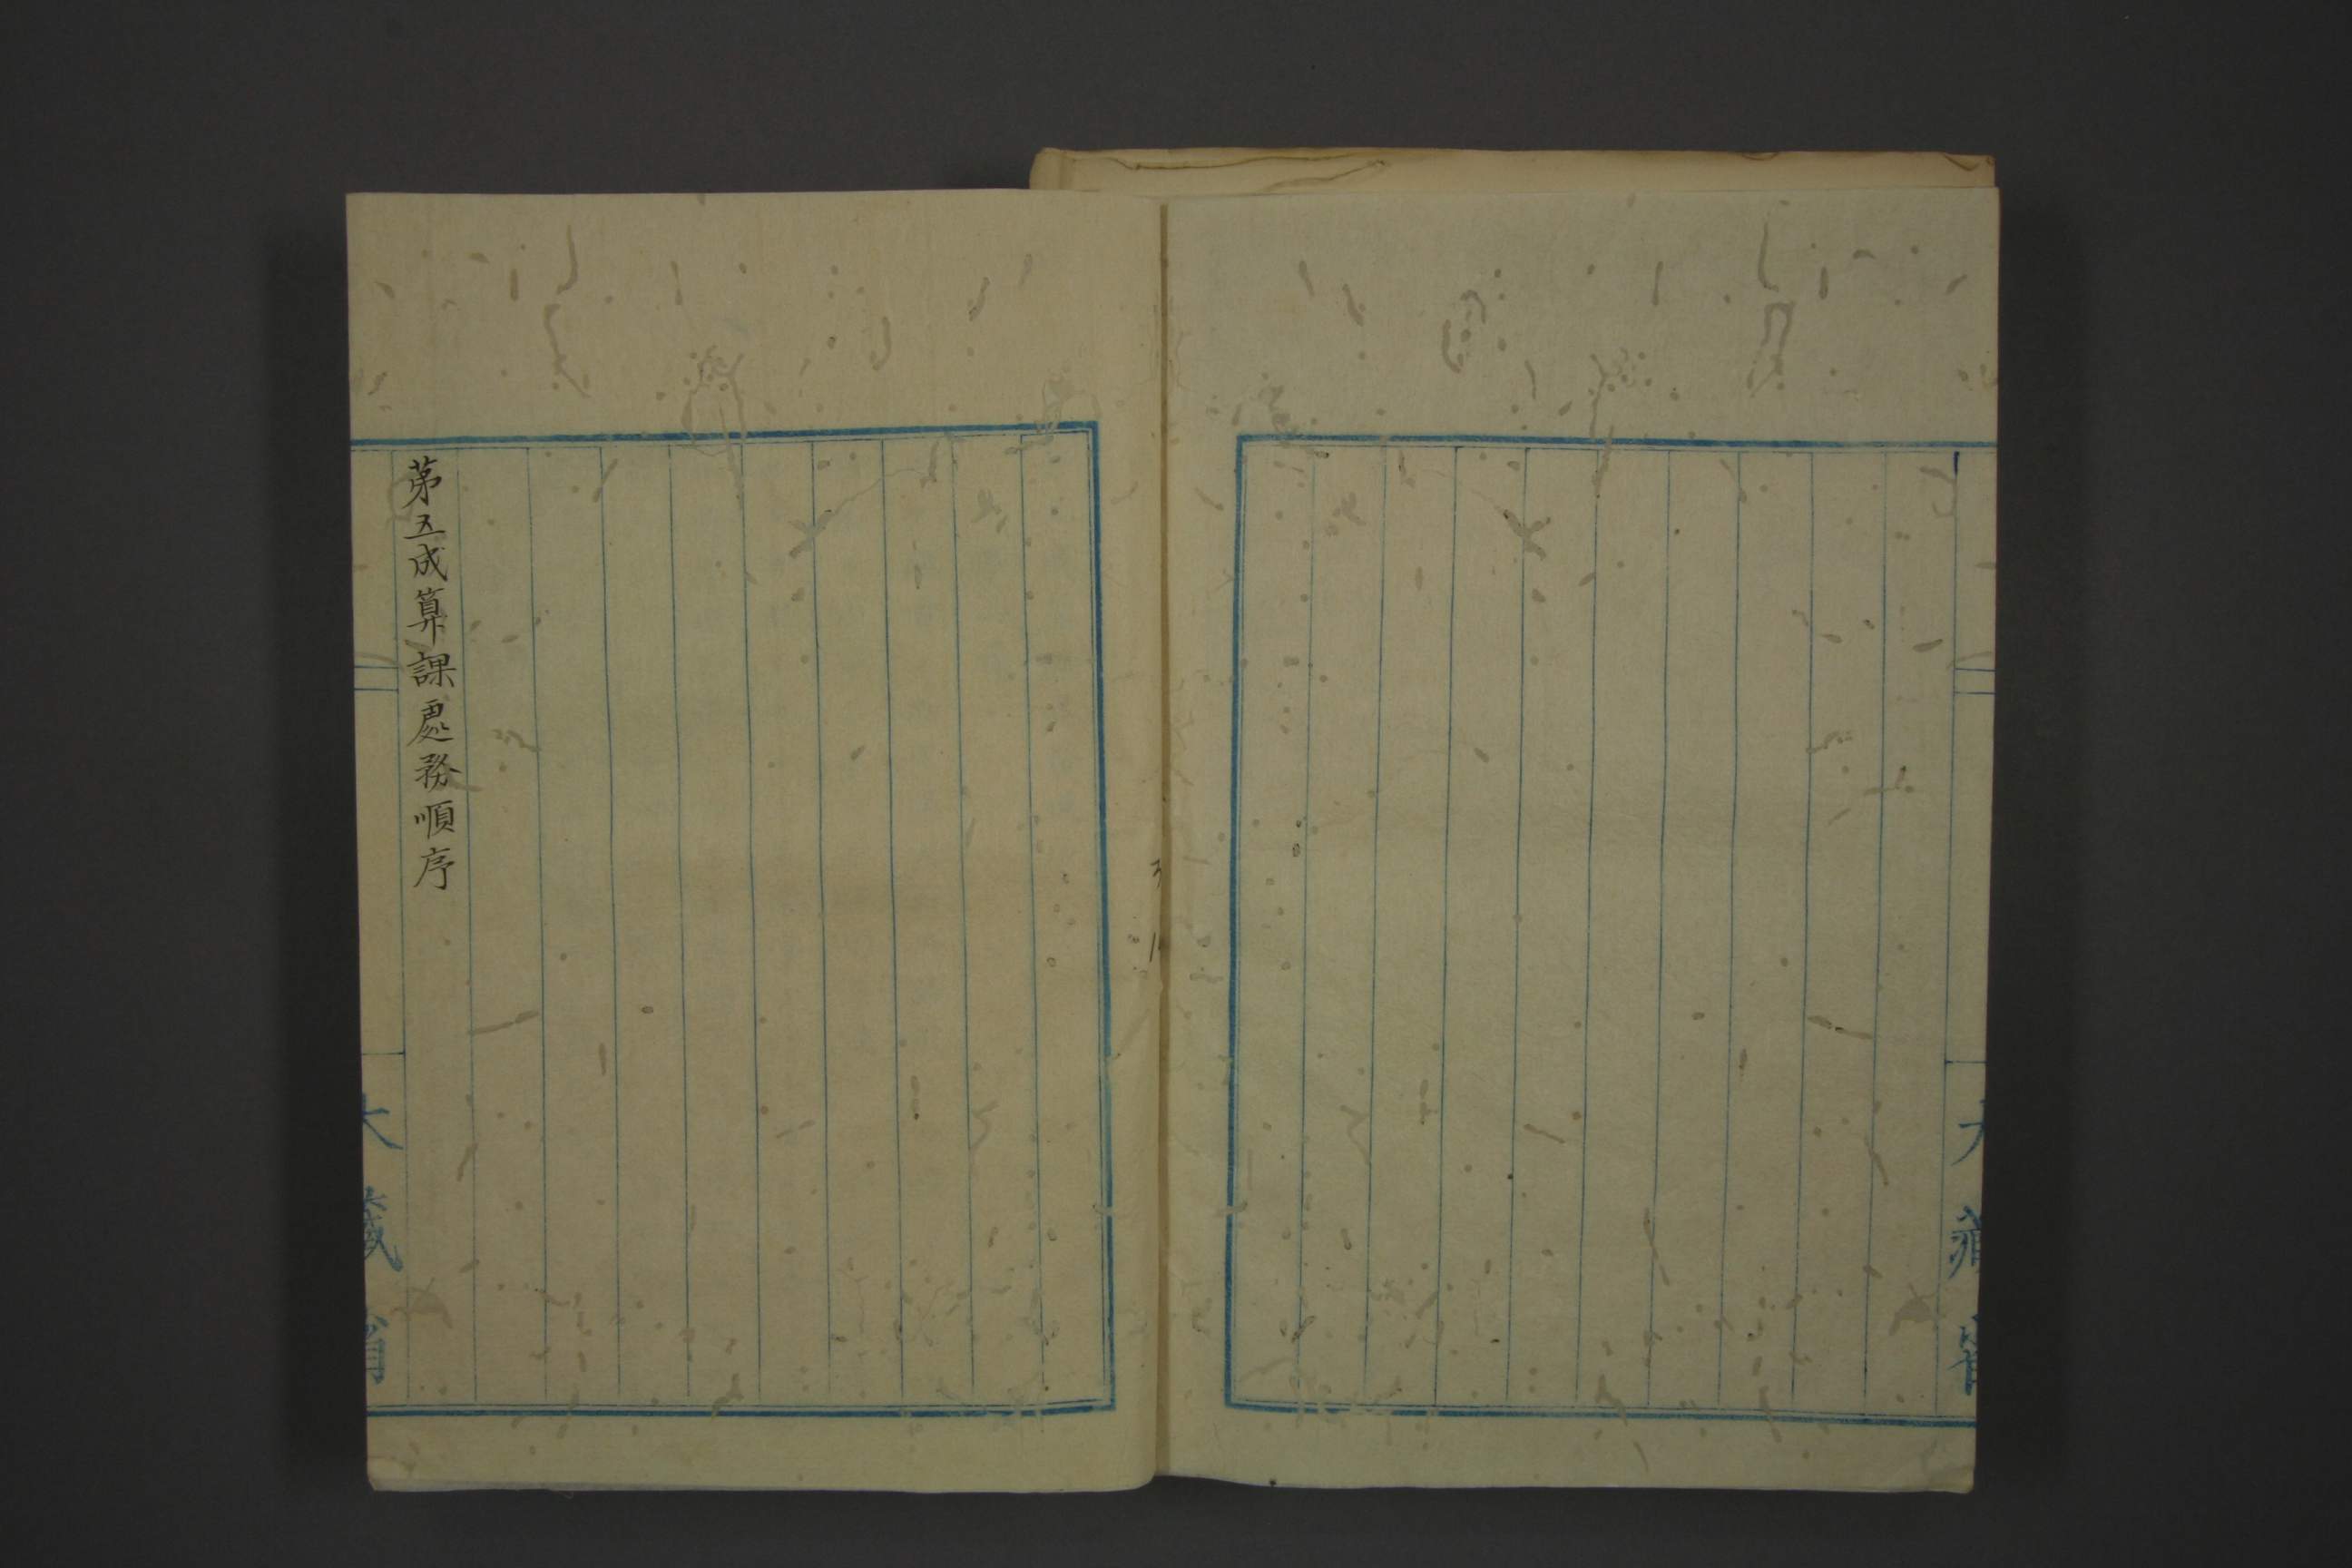 大藏省
第五成算課處務順序
大藏省